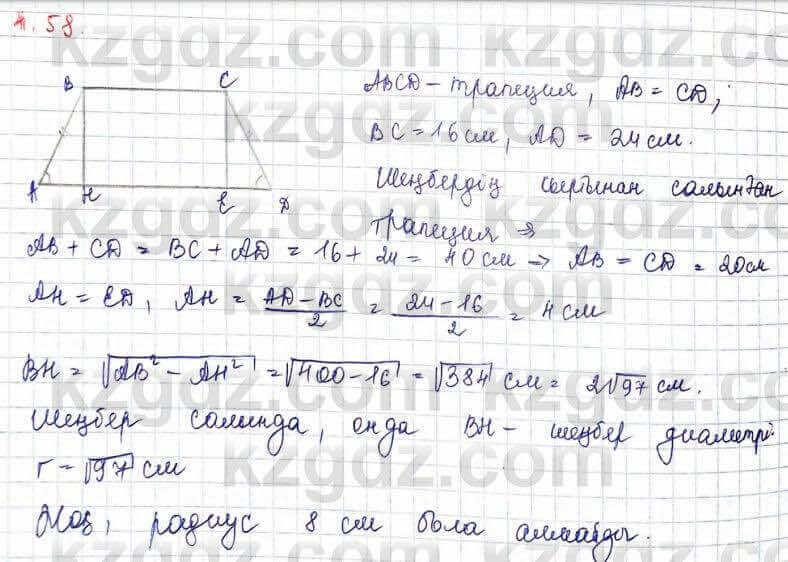 4.58.
B C
A H E D
ABCD - трапеция, AB = CD;
BC = 16 см, AD = 24 см.
Шеңбердің сыртынан салынған
трапеция ⇒
AB + CD = BC + AD = 16 + 24 = 40 см → AB = CD = 20см
AH = ED, AH = (AD - BC)/2 = (24 - 16)/2 = 4 см
BH = √(AB² - AH²) = √(400 - 16) = √384 см = 2√97 см.
Шеңбер салында, онда BH - шеңбер диаметрі
r = √97 см
Жоқ, радиус 8 см бола алмайды.
kzgdz.com
kzgdz.com
kzgdz.com
kzgdz.com
kzgdz.com
kzgdz.com
kzgdz.com